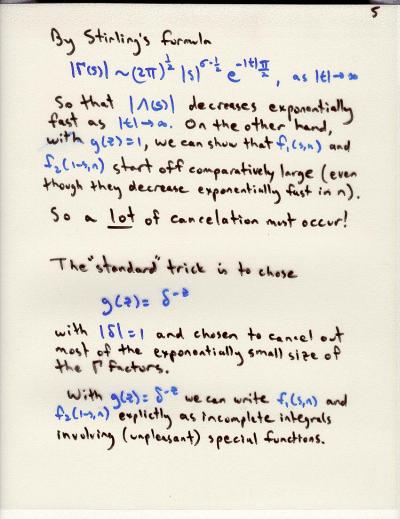 5
By Stirling's formula
|Γ(s)| ~ (2π)^{1/2} |s|^{σ-1/2} e^{-|t|π/2}, as |t|→∞
So that |Λ(s)| decreases exponentially
fast as |t|→∞. On the other hand,
with g(z)=1, we can show that f₁(s,n) and
f₂(1-s,n) start off comparatively large (even
though they decrease exponentially fast in n).
So a lot of cancelation must occur!
The "standard" trick is to chose
g(z) = δ^{-z}
with |δ|=1 and chosen to cancel out
most of the exponentially small size of
the Γ factors.
With g(z)=δ^{-z} we can write f₁(s,n) and
f₂(1-s,n) explictly as incomplete integrals
involving (unpleasant) special functions.